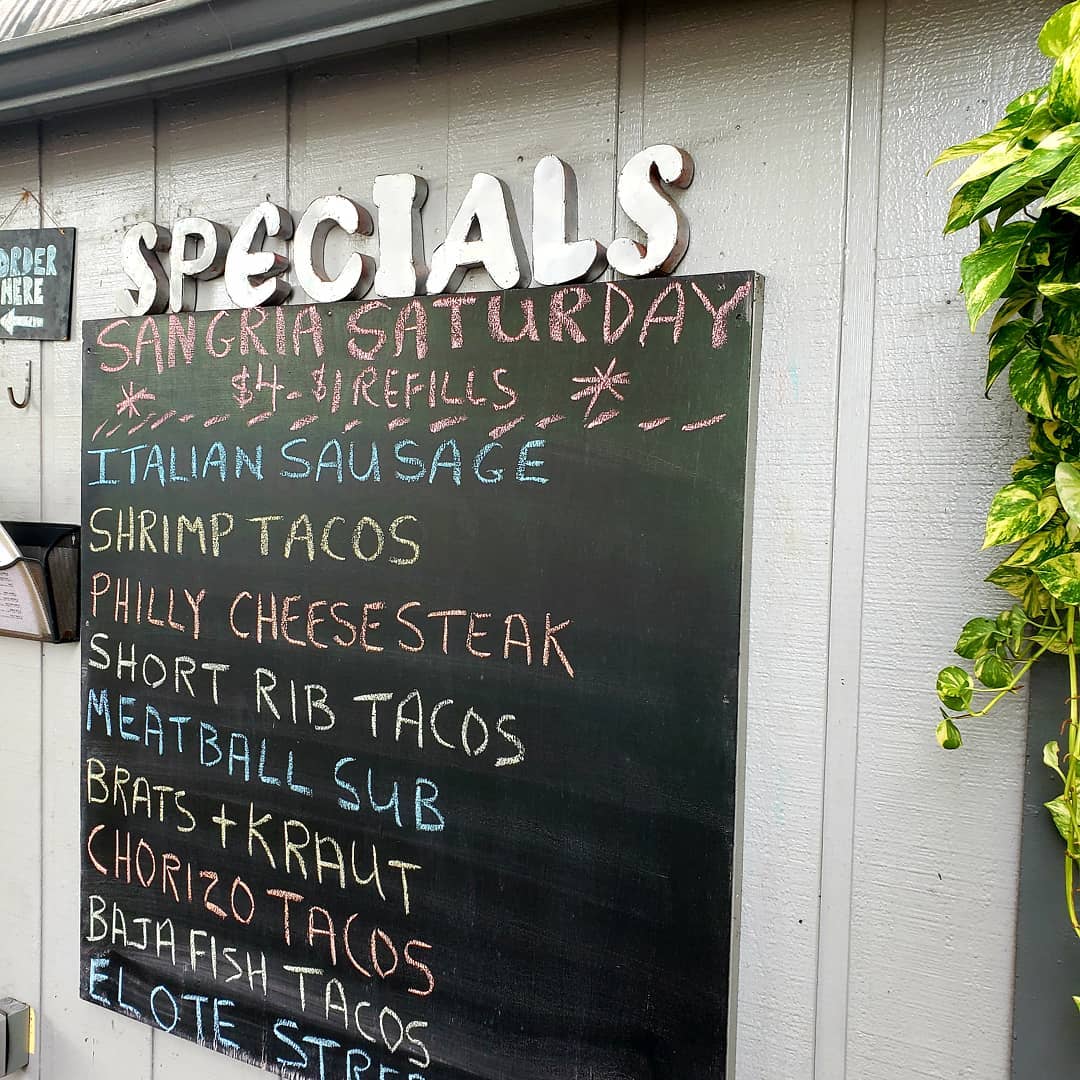 SPECIALS
ORDER
HERE
SANGRIA SATURDAY
$4-$1 REFILLS
ITALIAN SAUSAGE
SHRIMP TACOS
PHILLY CHEESESTEAK
SHORT RIB TACOS
MEATBALL SUB
BRATS + KRAUT
CHORIZO TACOS
BAJA FISH TACOS
ELOTE